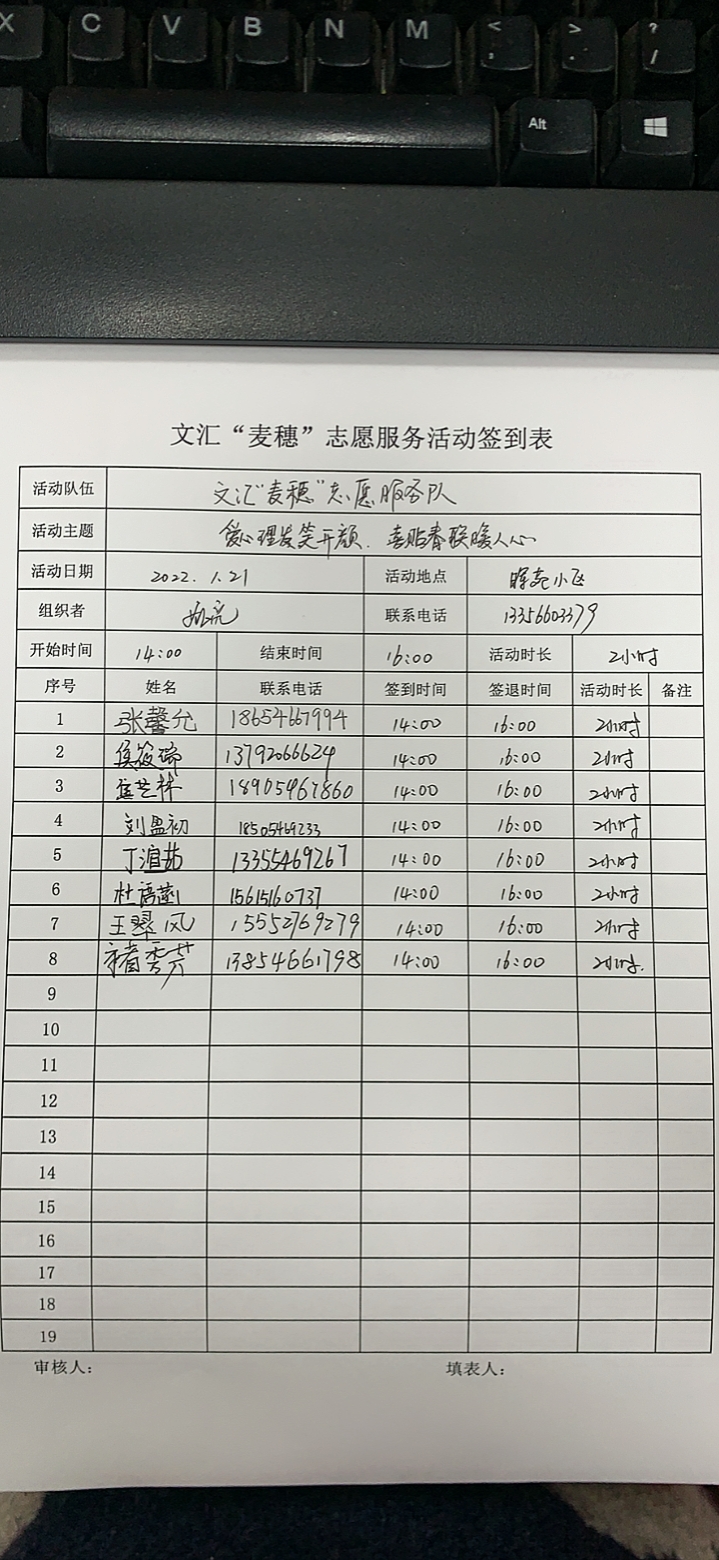 X C V B N M < , > . ? /
Alt
文汇“麦穗”志愿服务活动签到表
活动队伍 文汇“麦穗”志愿服务队
活动主题 爱心理发笑开颜、喜贴春联暖人心
活动日期 2022.1.21 活动地点 晖苑小区
组织者 联系电话 13356603379
开始时间 14:00 结束时间 16:00 活动时长 2小时
序号 姓名 联系电话 签到时间 签退时间 活动时长 备注
1 张馨允 18654667994 14:00 16:00 2小时
2 13792066624 14:00 16:00 2小时
3 18905467860 14:00 16:00 2小时
4 刘盈初 18505469233 14:00 16:00 2小时
5 13355469267 14:00 16:00 2小时
6 15615160737 14:00 16:00 2小时
7 王翠风 15552769279 14:00 16:00 2小时
8 褚秀芹 13854661798 14:00 16:00 2小时.
9
10
11
12
13
14
15
16
17
18
19
审核人： 填表人：